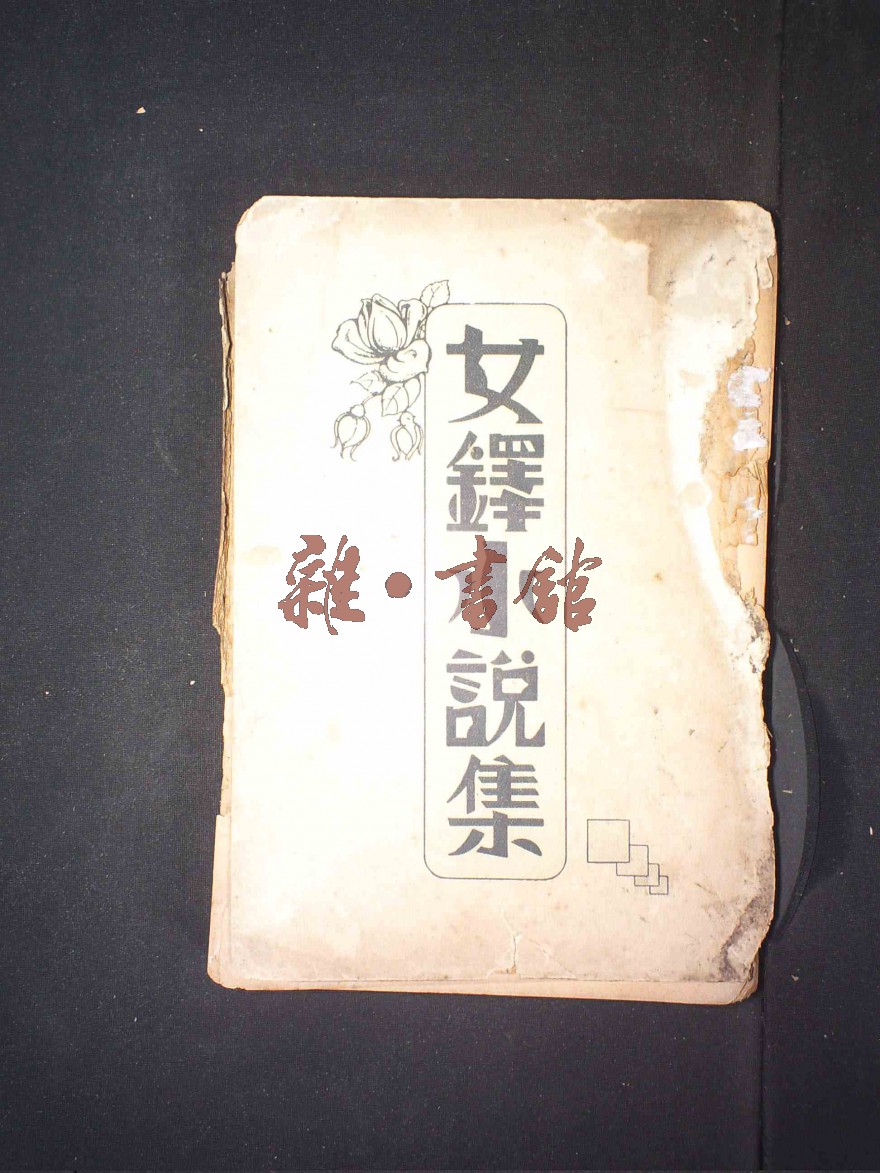 女鐸小說集
雜·書館